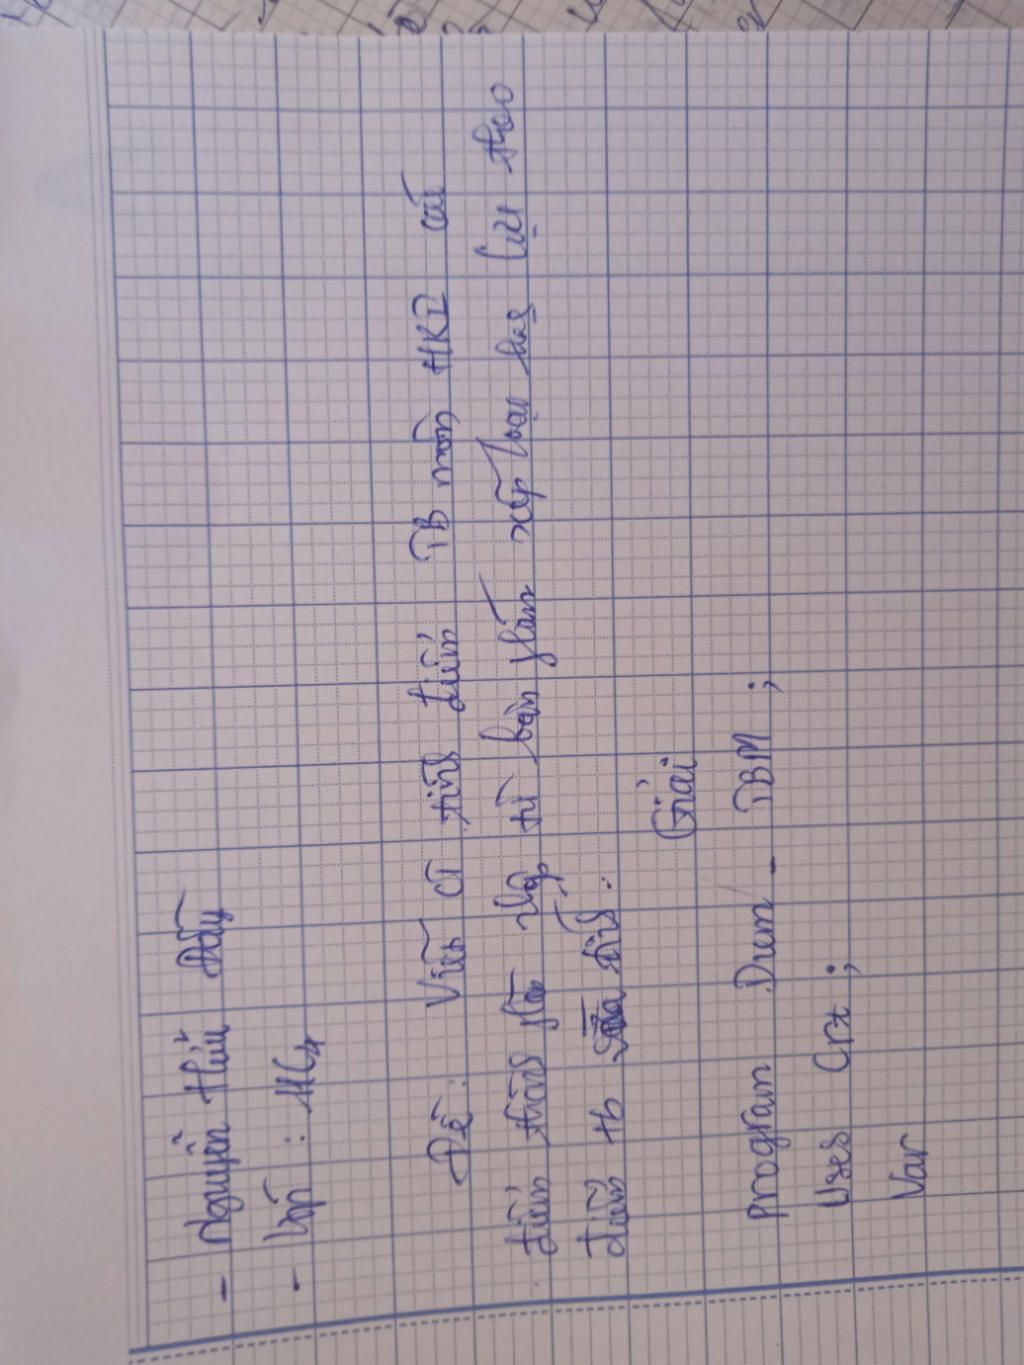 - Nguyễn Hữu Đấy
- Lớp : 11C4
Đề: Viết CT tính điểm TB môn HKI các
điểm thành phần nhập từ bàn phím xếp loại học lực theo
điểm tb
Giải
Program Diem _ TBM ;
Uses Crt ;
Var